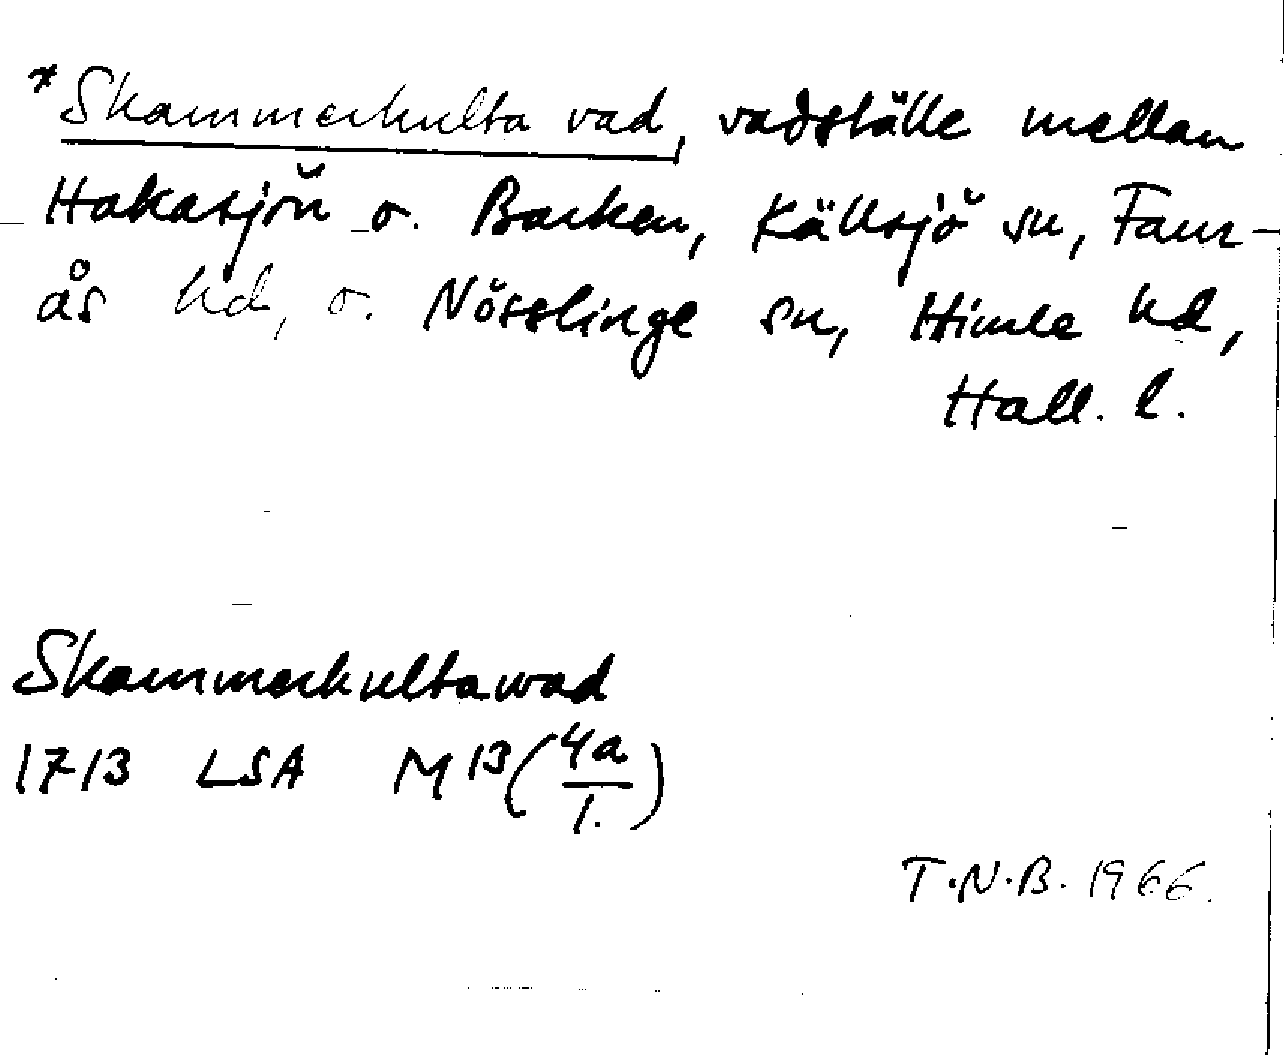 *Skammerhulta vad, vadställe mellan
Hakasjön o. Barken, Källsjö sn, Faur-
ås hd, o. Nösslinge sn, Himle hd,
Hall. l.
Skammerhultawad
1713 LSA M13(4a/1.)
T.N.B. 1966.